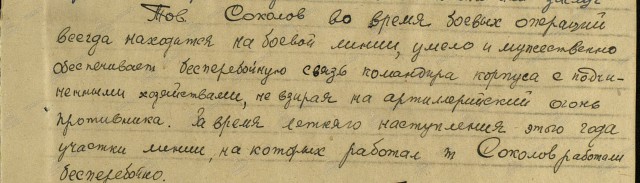 Тов. Соколов во время боевых операций
всегда находится на боевой линии, умело и мужественно
обеспечивает бесперебойную связь командира корпуса с подчи-
ненными хозяйствами, не взирая на артиллерийский огонь
противника. За время летнего наступления этого года
участки линии, на которых работал т Соколов работали
бесперебойно.